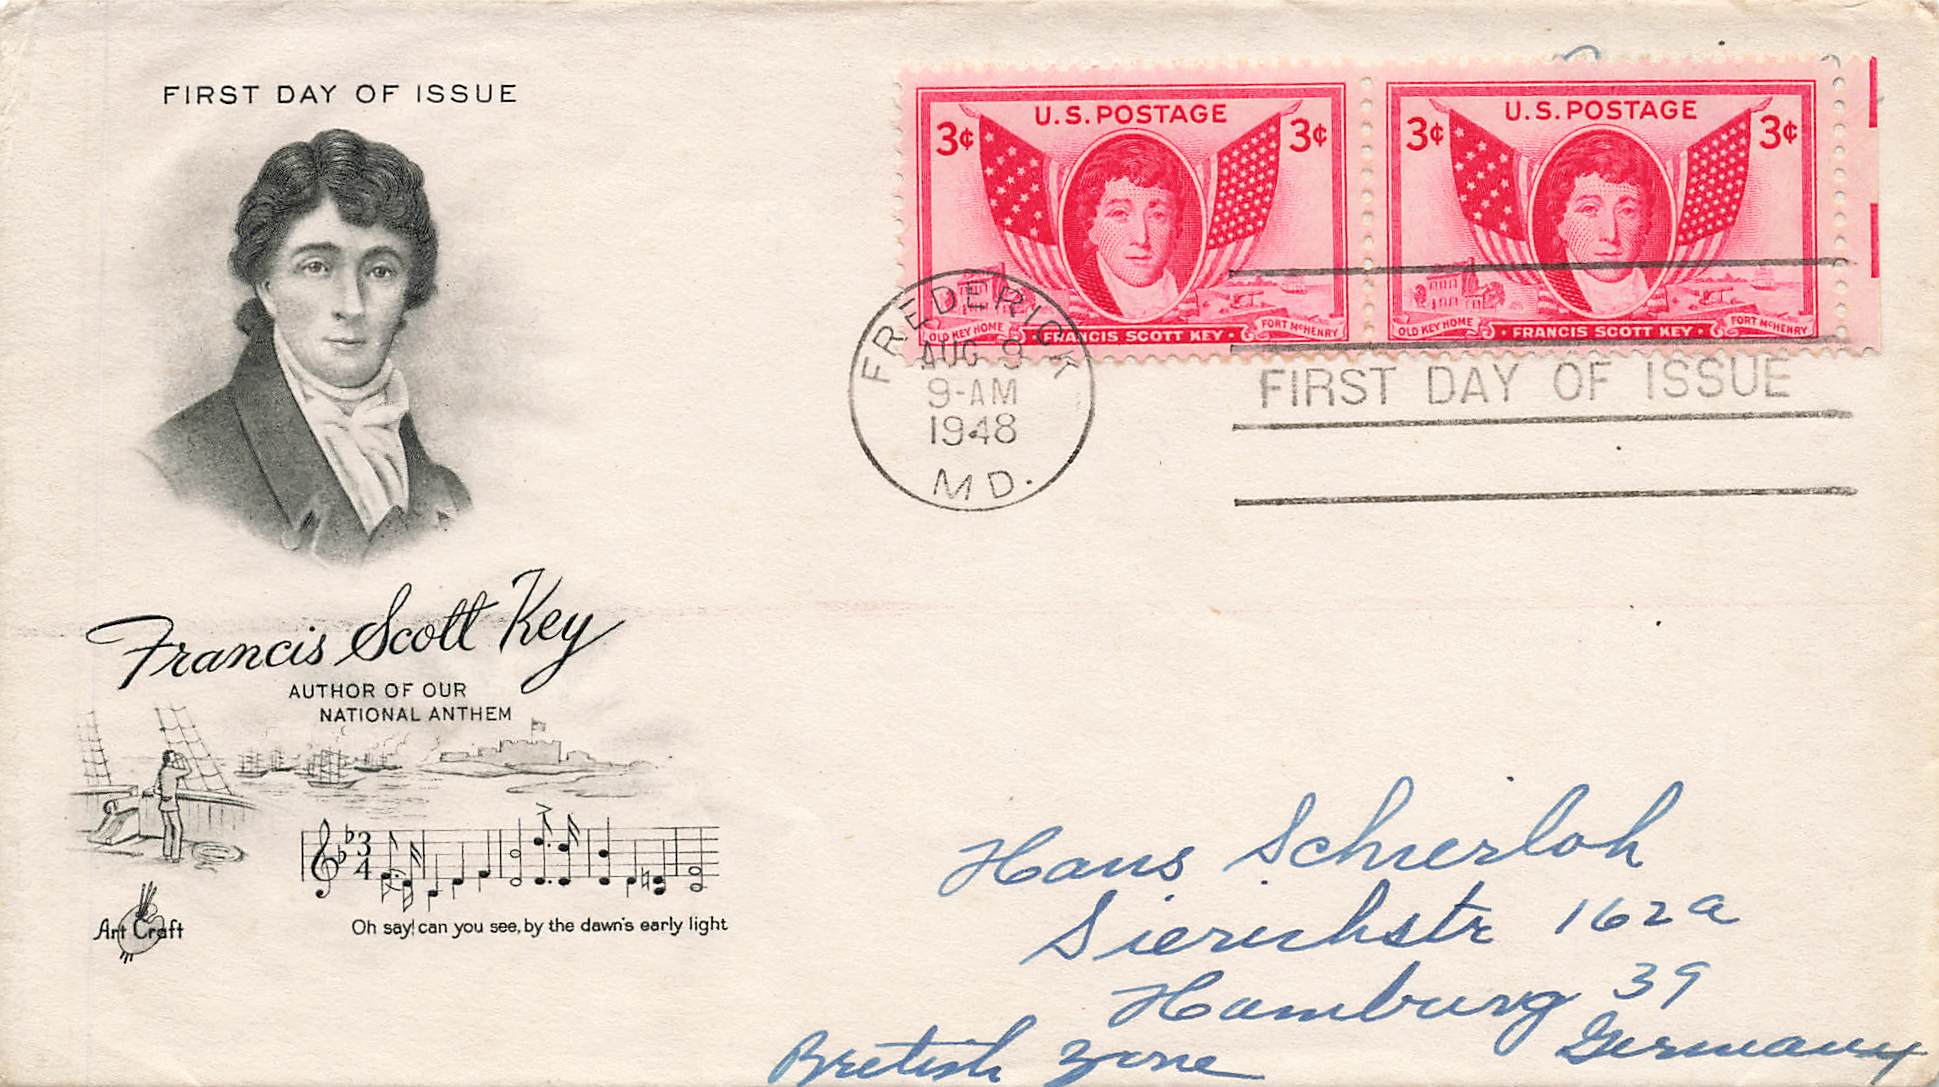 FIRST DAY OF ISSUE
U.S. POSTAGE
3¢ 3¢
OLD KEY HOME · FRANCIS SCOTT KEY · FORT McHENRY
U.S. POSTAGE
3¢ 3¢
OLD KEY HOME · FRANCIS SCOTT KEY · FORT McHENRY
FREDERICK
AUG 9
9-AM
1948
MD.
FIRST DAY OF ISSUE
Francis Scott Key
AUTHOR OF OUR
NATIONAL ANTHEM
3
4
Oh say! can you see, by the dawn's early light
Art Craft
Hans Schierloh
Sierichstr 162a
Hamburg 39
British Zone Germany